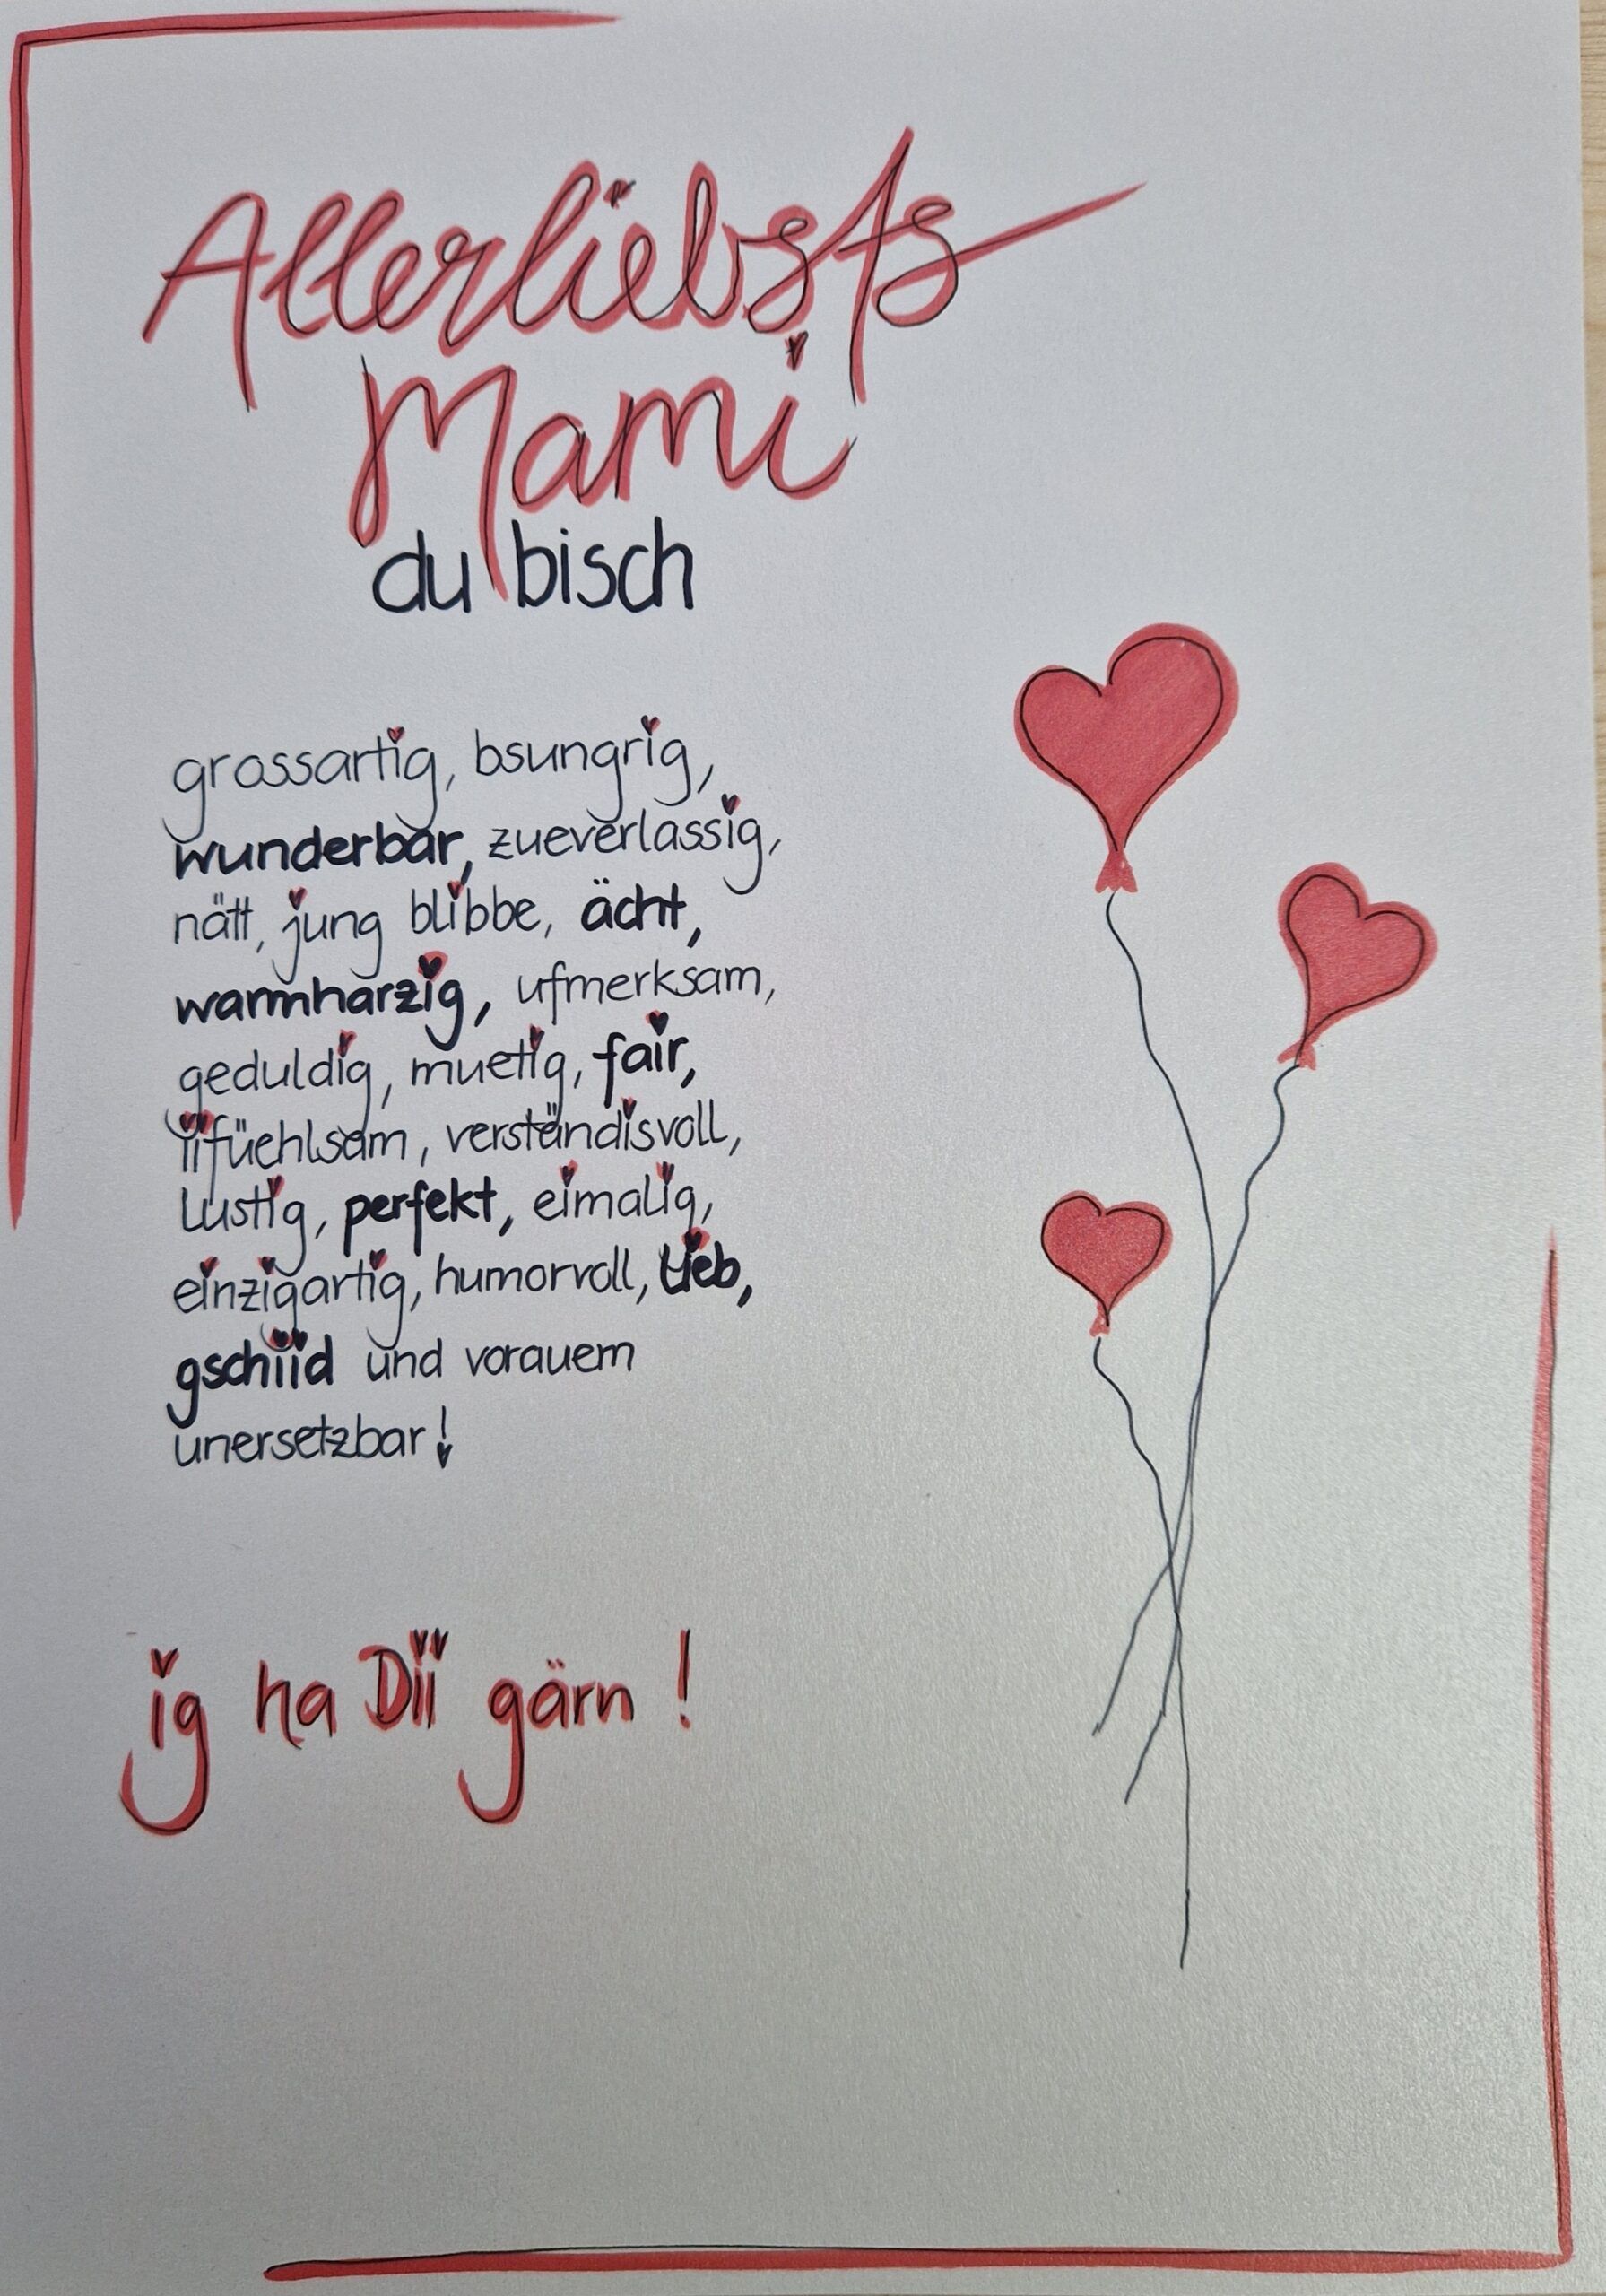 Allerliebsts
Mami
du bisch
grossartig, bsungrig,
wunderbar, zueverlässig,
nätt, jung blibbe, ächt,
warmharzig, ufmerksam,
geduldig, muetig, fair,
iifüehlsam, verständisvoll,
lustig, perfekt, eimalig,
einzigartig, humorvoll, lieb,
gschiid und vorauem
unersetzbar!
ig ha Dii gärn!